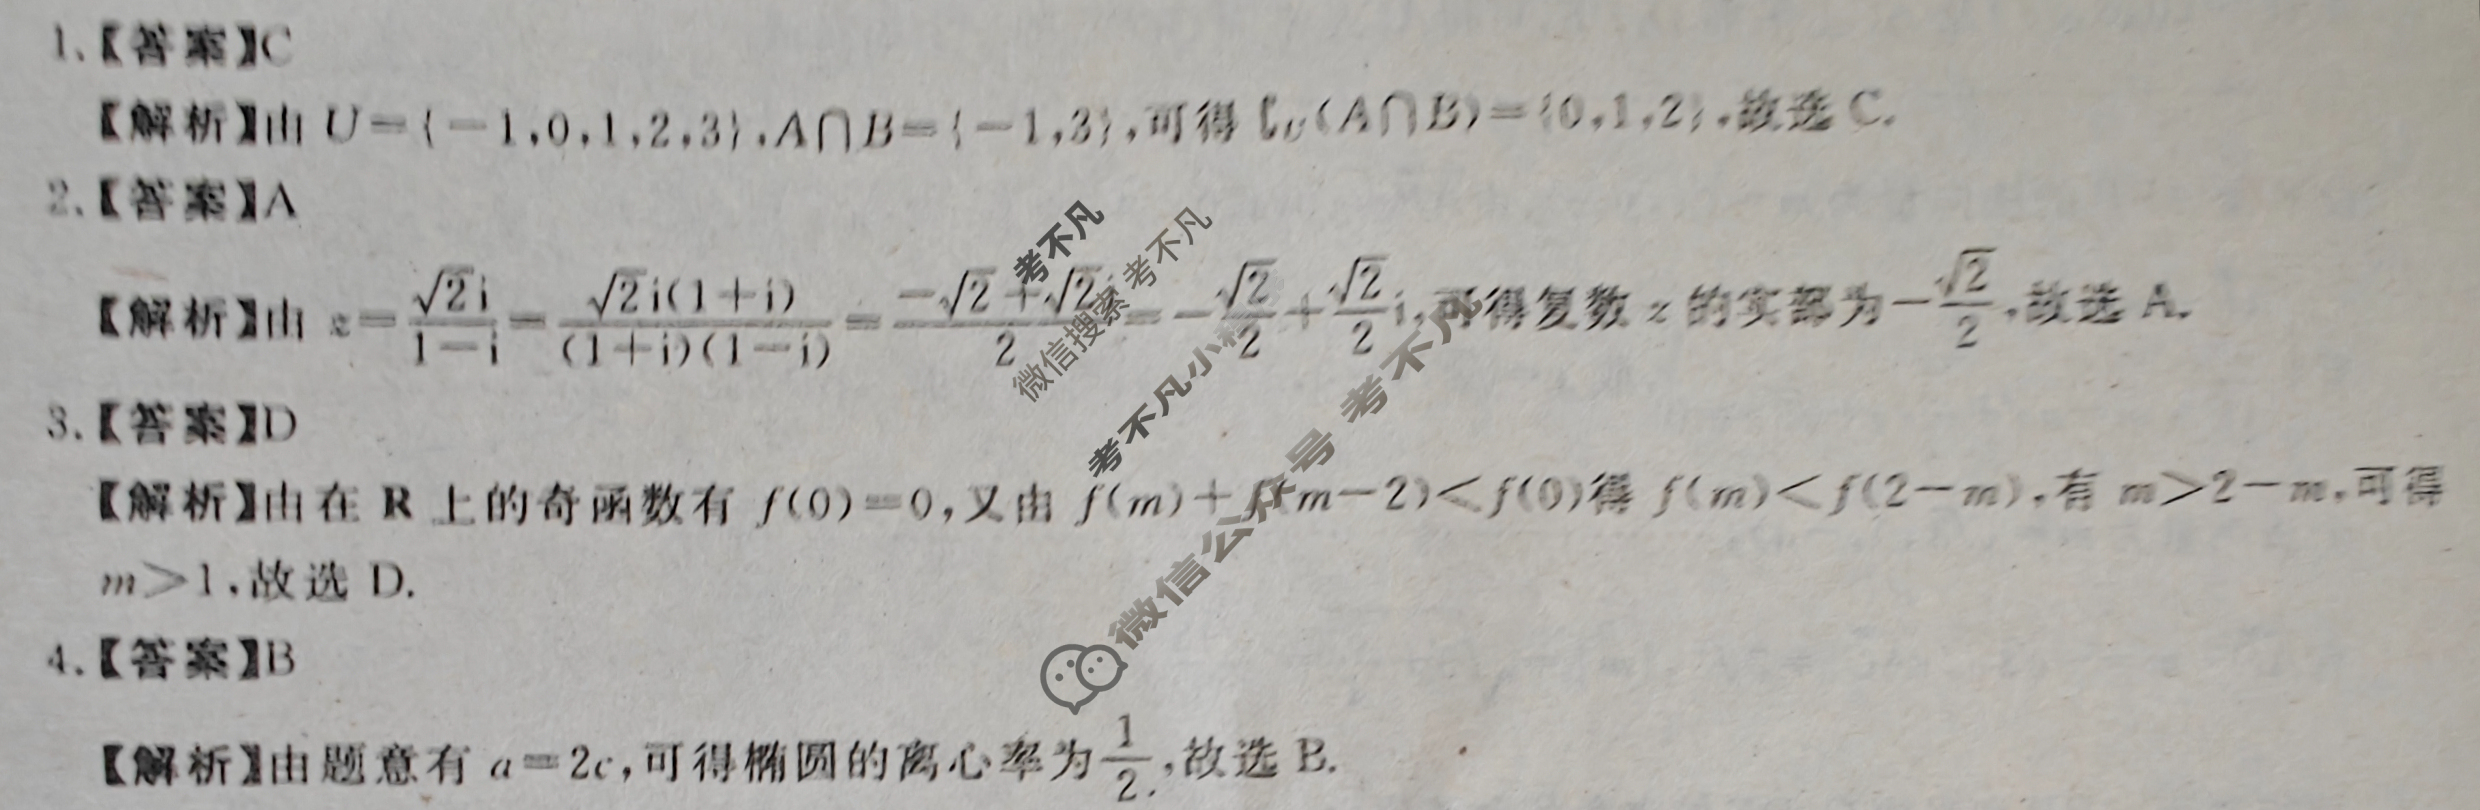 1.【答案】C
【解析】由 U={-1,0,1,2,3},A∩B={-1,3},可得 ∁_U(A∩B)={0,1,2},故选 C.
2.【答案】A
【解析】由 z=\frac{\sqrt{2}i}{1-i}=\frac{\sqrt{2}i(1+i)}{(1+i)(1-i)}=\frac{-\sqrt{2}+\sqrt{2}i}{2}=-\frac{\sqrt{2}}{2}+\frac{\sqrt{2}}{2}i,可得复数 z 的实部为-\frac{\sqrt{2}}{2},故选 A.
3.【答案】D
【解析】由在 R 上的奇函数有 f(0)=0,又由 f(m)+f(m-2)<f(0)得 f(m)<f(2-m),有 m>2-m,可得
m>1,故选 D.
4.【答案】B
【解析】由题意有 a=2c,可得椭圆的离心率为\frac{1}{2},故选 B.
考不凡
微信搜索 考不凡
考不凡小程
微信公众号 考不凡